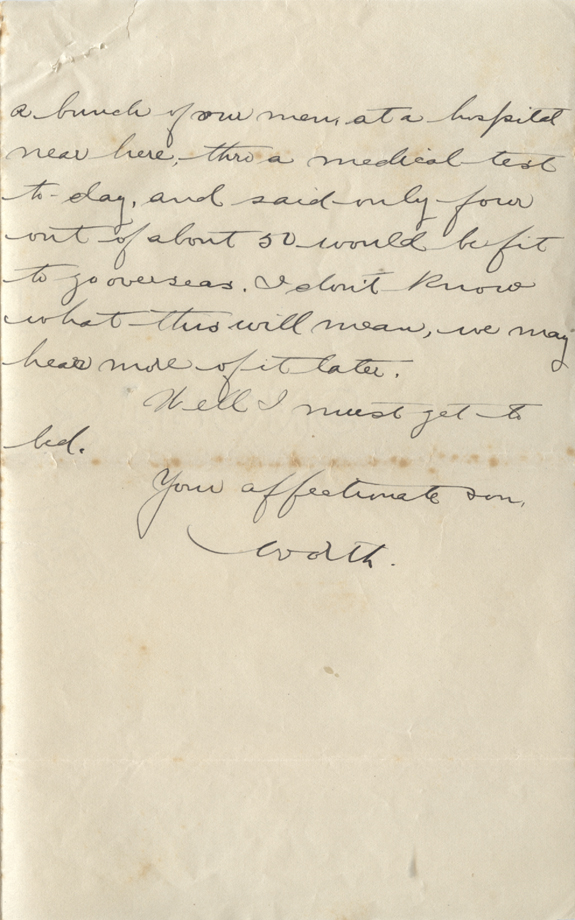 a bunch of our men, at a hospital
near here, thro a medical test
to-day, and said only four
out of about 50 would be fit
to go overseas. I don't know
what this will mean, we may
hear more of it later.
Well I must get to
bed.
Your affectionate son,
Worth.